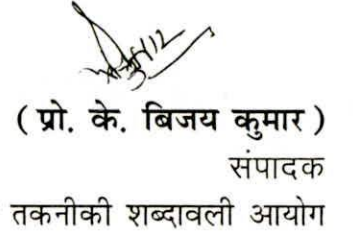 ( प्रो. के. बिजय कुमार )
संपादक
तकनीकी शब्दावली आयोग